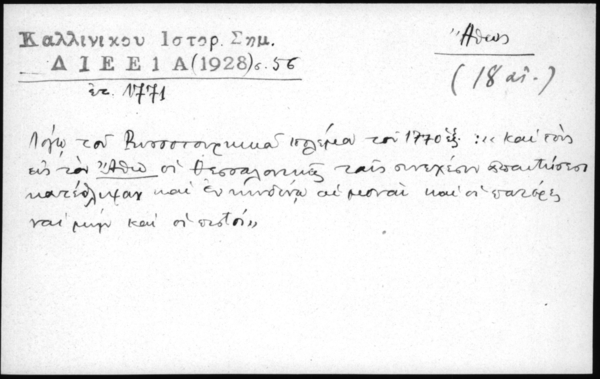 Καλλινικου Ιστορ. Σημ.
ΔΙΕΕ1Α(1928)σ. 56
ἐτ. 1771
Ἄθως
(18 αἰ.)
Λόγῳ τοῦ πολέμου τοῦ 1770 ἑξ. : « καὶ τοὺς
εἰς τὸν Ἄθω οἱ Θεσσαλονικῆς ταῖς συνεχέσιν ἀπαιτήσεσι
κατέθλιψαν καὶ ἐν κινδύνῳ αἱ μοναὶ καὶ οἱ πατέρες
ναὶ μὴν καὶ οἱ πιστοί »